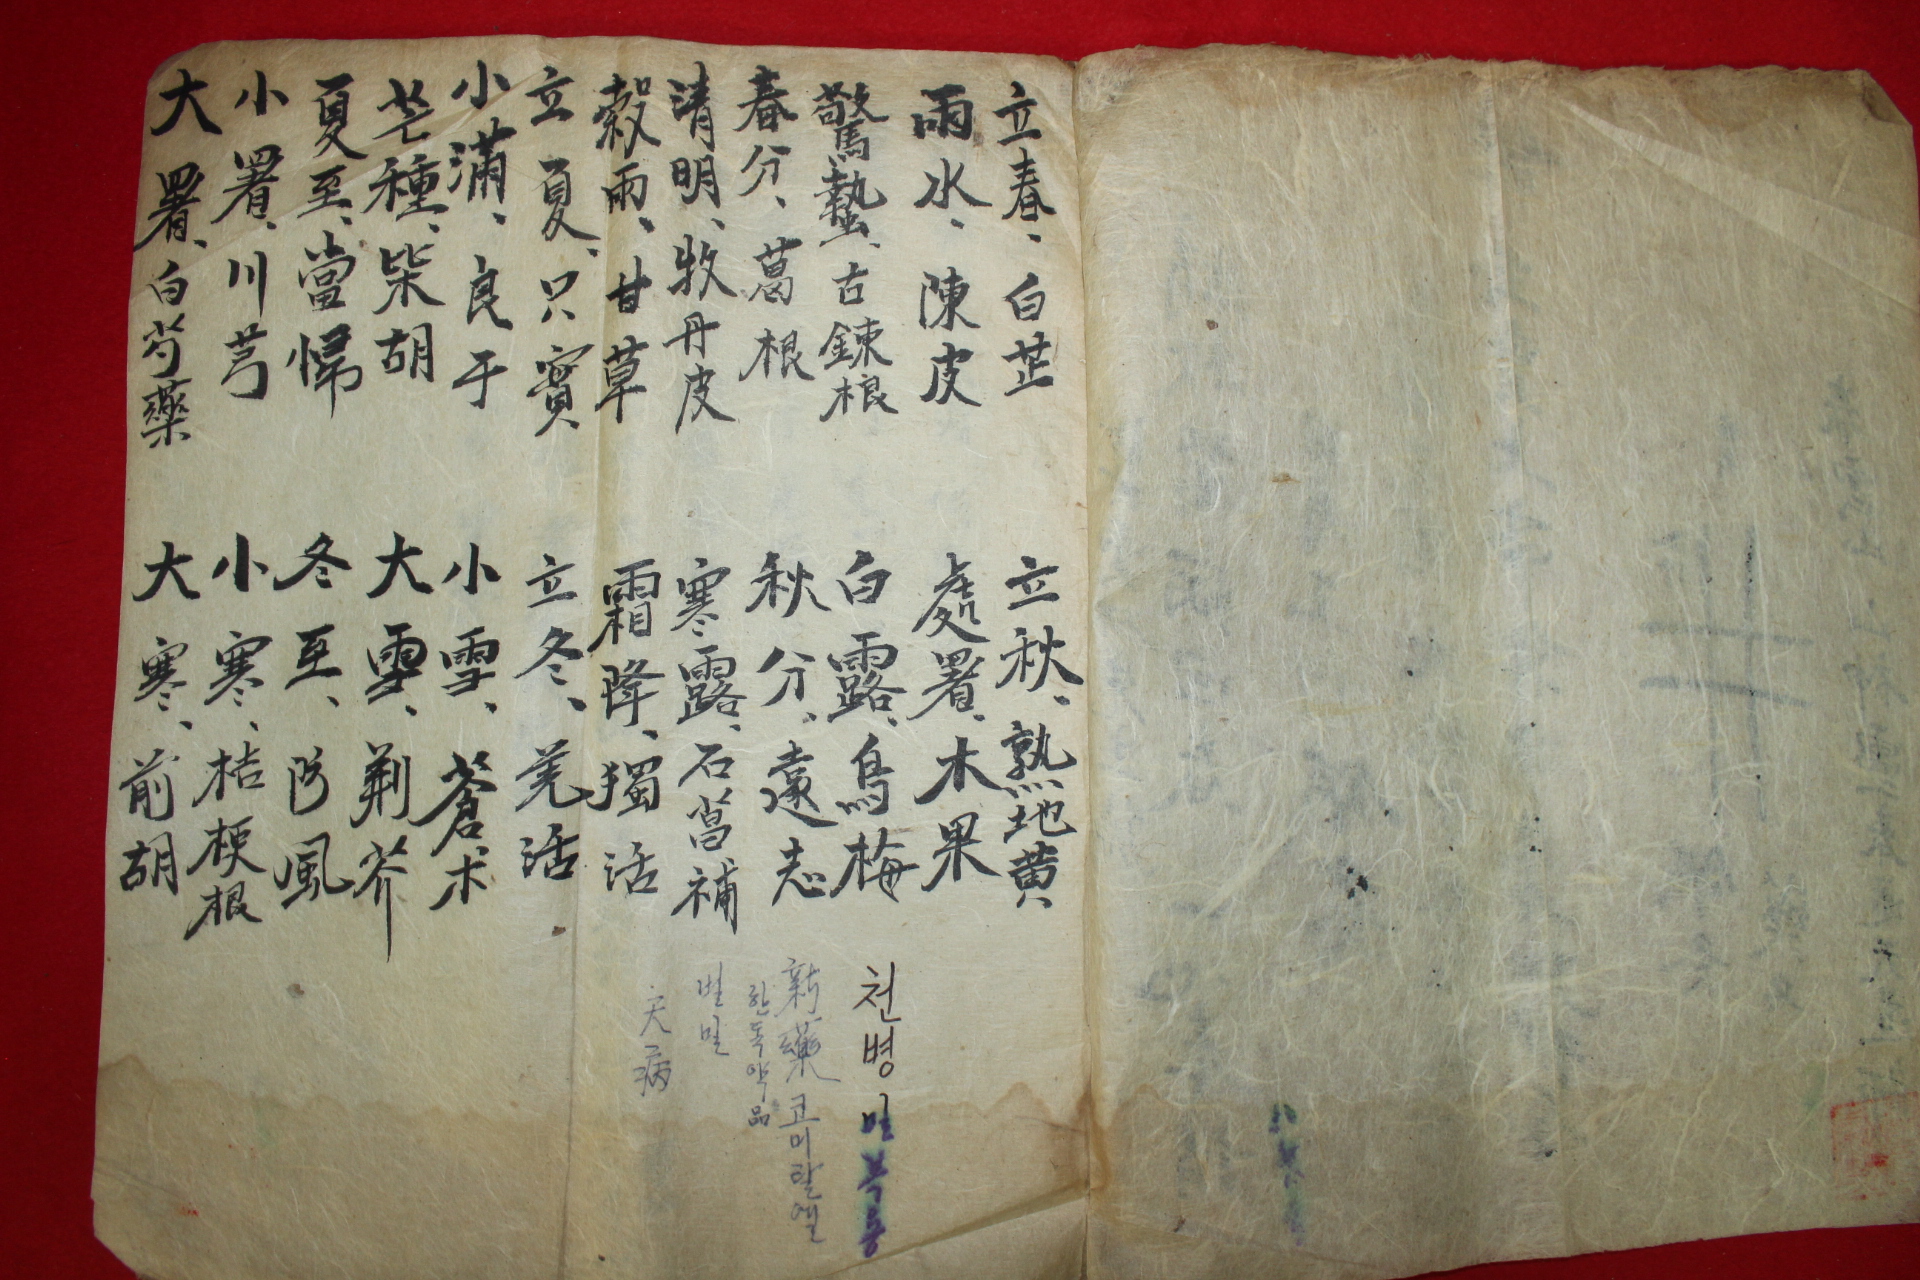 立春、白芷
雨水、陳皮
驚蟄、古鍊根
春分、葛根
清明、牧丹皮
穀雨、甘草
立夏、只實
小満、良干
芒種、柴胡
夏至、當帰
小署、川芎
大署、白芍藥
立秋、熟地黄
處署、木果
白露、烏梅
秋分、遠志
寒露、石菖補
霜降、獨活
立冬、羌活
小雪、蒼朮
大雪、荆芥
冬至、防風
小寒、桔梗根
大寒、前胡
천병
新藥 코미탈엘
한독약品
벌밀
天病